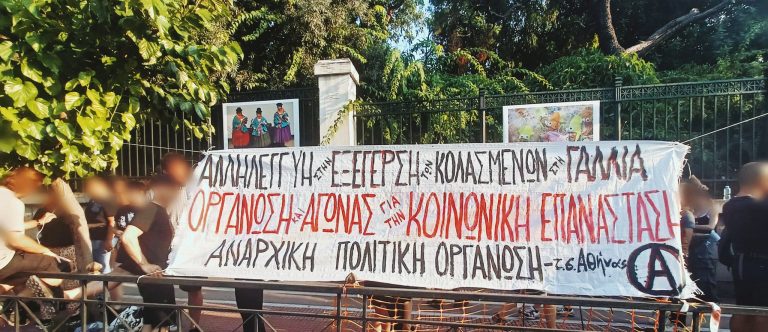 ΑΛΛΗΛΕΓΓΥΗ ΣΤΗΝ ΕΞΕΓΕΡΣΗ ΤΩΝ ΚΟΛΑΣΜΕΝΩΝ ΣΤΗ ΓΑΛΛΙΑ
ΟΡΓΑΝΩΣΗ ΚΑΙ ΑΓΩΝΑΣ ΓΙΑ ΤΗΝ ΚΟΙΝΩΝΙΚΗ ΕΠΑΝΑΣΤΑΣΗ
ΑΝΑΡΧΙΚΗ ΠΟΛΙΤΙΚΗ ΟΡΓΑΝΩΣΗ - τ.σ. Αθήνας Α